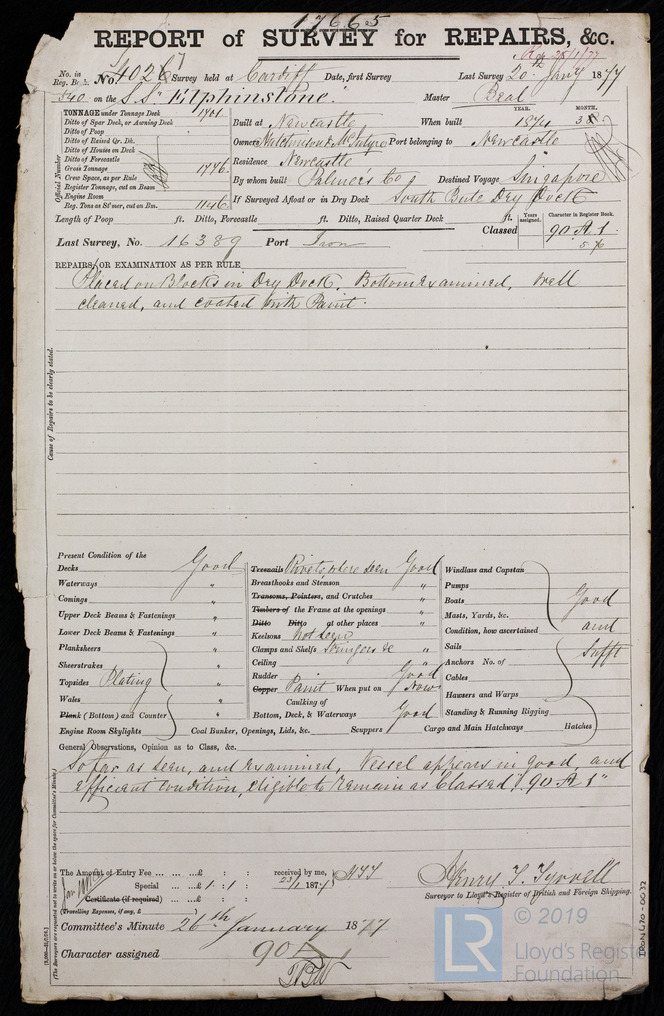 17665
REPORT of SURVEY for REPAIRS, &c.
No. in Reg. Book. No. 4026 Survey held at Cardiff Date, first Survey Last Survey 20th Jany 1877
540 on the S.S. "Elphinstone" Master Beal
TONNAGE under Tonnage Deck 1701
Ditto of Spar Deck, or Awning Deck
Ditto of Poop
Ditto of Raised Qr. Dk.
Ditto of Houses on Deck
Ditto of Forecastle
Gross Tonnage 1776
Crew Space, as per Rule
Register Tonnage, cut on Beam
Engine Room
Reg. Tons as St'mer, cut on Bm. 1146
Official Number
YEAR. MONTH.
Built at Newcastle When built 1874 3
Owners Hutchinson & McIntyre Port belonging to Newcastle
Residence Newcastle
By whom built Palmer's Co Destined Voyage Singapore
If Surveyed Afloat or in Dry Dock South Bute Dry Dock
Length of Poop ft. Ditto, Forecastle ft. Ditto, Raised Quarter Deck ft.
Years assigned. Character in Register Book.
Classed 90 A 1
5 76
Last Survey, No. 16389 Port Iron
REPAIRS, OR EXAMINATION AS PER RULE
Placed on Blocks in Dry Dock. Bottom examined, well
cleaned, and coated with Paint.
Cause of Repairs to be clearly stated.
Present Condition of the
Decks Good
Waterways "
Comings "
Upper Deck Beams & Fastenings "
Lower Deck Beams & Fastenings "
Planksheers "
Sheerstrakes "
Topsides Plating "
Wales "
Plank (Bottom) and Counter "
Engine Room Skylights
Treenails Rivets where seen Good
Breasthooks and Stemson "
Transoms, Pointers, and Crutches "
Timbers of the Frame at the openings "
Ditto Ditto at other places "
Keelsons not seen
Clamps and Shelfs Stringers &c "
Ceiling "
Rudder Good
Copper Paint When put on Now
Caulking of
Bottom, Deck, & Waterways Good
Coal Bunker, Openings, Lids, &c. Scuppers Cargo and Main Hatchways Hatches
Windlass and Capstan
Pumps
Boats Good
Masts, Yards, &c.
Condition, how ascertained and
Sails Sufft
Anchors No. of
Cables
Hawsers and Warps
Standing & Running Rigging
General Observations, Opinion as to Class, &c.
So far as seen, and examined, Vessel appears in good, and
efficient condition, eligible to remain as Classed "90 A 1"
(The Surveyors are requested not to write on or below the space for Committee's Minute.)
The Amount of Entry Fee £ : : received by me,
Special £ 1 : 1 : 23/1 1877
Certificate (if required) : :
(Travelling Expenses, if any, £
Henry T. Tyrrell
Surveyor to Lloyd's Register of British and Foreign Shipping.
Committee's Minute 26th January 1877
Character assigned 90 A 1
IRON 470-0032
LR
© 2019
Lloyd's Register
Foundation